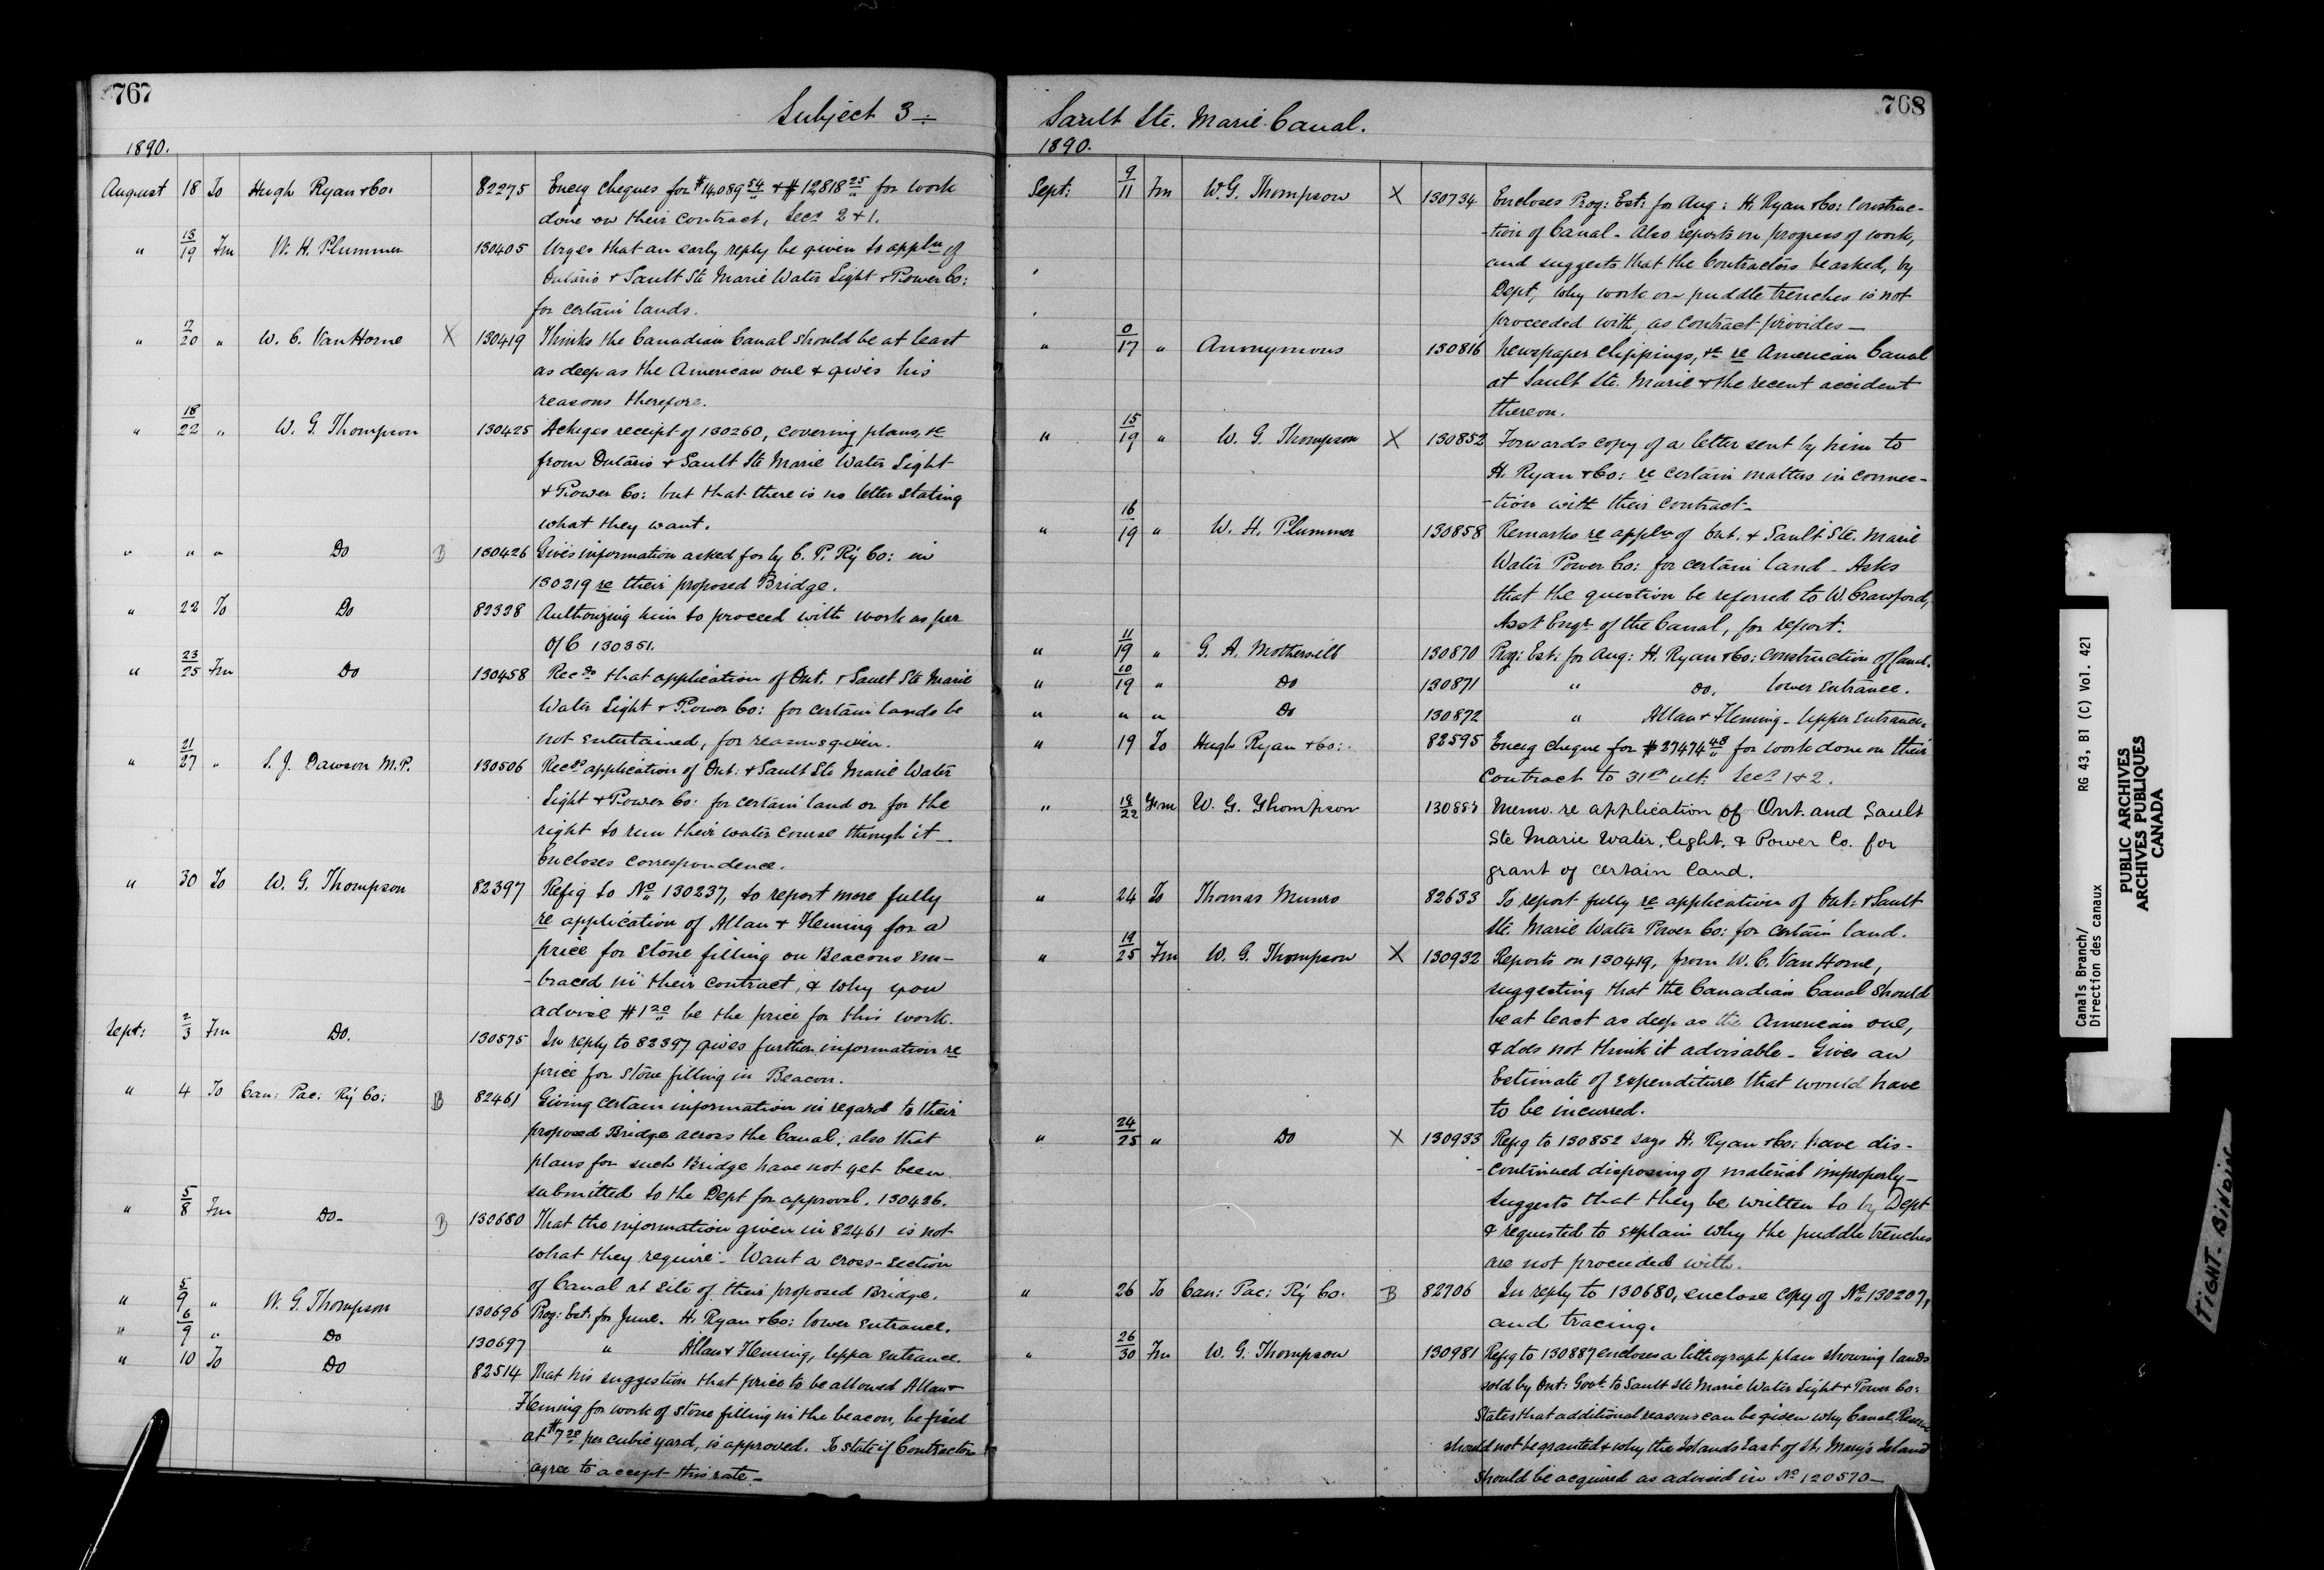 767
Subject 3 ÷
1890.
August 18 To Hugh Ryan & Co: 82275 Encg cheques for $14,089 54 & $12818 25 for work
done on their contract, Secs 2 & 1.
" 13/19 Fm W. H. Plummer 130405 Urges that an early reply be given to appln of
Ontario & Sault Ste Marie Water Light & Power Co:
for certain lands.
" 17/20 " W. C. Van Horne X 130419 Thinks the Canadian Canal should be at least
as deep as the American one & gives his
reasons therefore.
" 18/22 " W. G. Thompson 130425 Ackgs receipt of 130260, covering plans, &c
from Ontario & Sault Ste Marie Water Light
& Power Co: but that there is no letter stating
what they want.
" " " Do B 130426 Gives information asked for by C. P. Ry Co: in
130219 re their proposed Bridge.
" 22 To Do 82328 Authorizing him to proceed with work as per
O/C 130351.
" 23/25 Fm Do 130458 Recds that application of Ont. & Sault Ste Marie
Water Light & Power Co: for certain lands be
not entertained, for reasons given.
" 21/27 " S. J. Dawson M.P. 130506 Recds application of Ont: & Sault Ste Marie Water
Light & Power Co: for certain land or for the
right to run their water course through it —
Encloses correspondence.
" 30 To W. G. Thompson 82397 Refg to No 130237, to report more fully
re application of Allan & Fleming for a
price for stone filling on Beacons em-
-braced in their contract, & why you
advise $1 20 be the price for this work.
Sept: 2/3 Fm Do. 130575 In reply to 82397 gives further information re
price for stone filling in Beacon.
" 4 To Can: Pac: Ry Co: B 82461 Giving certain information in regard to their
proposed Bridge across the Canal; also that
plans for such Bridge have not yet been
submitted to the Dept for approval. 130426.
" 5/8 Fm Do- B 130680 That the information given in 82461 is not
what they require. Want a cross-section
of Canal at site of their proposed Bridge.
" 5/9 " W. G. Thompson 130696 Prog: Est: for June. H. Ryan & Co: lower entrance.
" 6/9 " Do 130697 " Allan & Fleming, upper entrance.
" 10 To Do 82514 That his suggestion that price to be allowed Allan &
Fleming for work of stone filling in the beacon, be fixed
at $ 20 per cubic yard, is approved. To state if Contractors
agree to accept this rate —
768
Sault Ste. Marie Canal.
1890.
Sept: 9/11 Fm W. G. Thompson X 130734 Encloses Prog: Est: for Aug: H. Ryan & Co: Construc-
-tion of Canal. Also reports on progress of work,
and suggests that the Contractors be asked, by
Dept, why work on puddle trenches is not
proceeded with, as contract provides —
" 0/17 " Anonymous 130816 Newspaper clippings, &c re American Canal
at Sault Ste. Marie & the recent accident
thereon.
" 15/19 " W. G. Thompson X 130852 Forwards copy of a letter sent by him to
H. Ryan & Co: re certain matters in connec-
-tion with their contract —
" 16/19 " W. H. Plummer 130858 Remarks re appln of Ont. & Sault Ste. Marie
Water Power Co: for certain land - Asks
that the question be referred to W. Crawford,
Asst Engr of the Canal, for report.
" 11/19 " G. A. Mothersill 130870 Prog: Est: for Aug: H. Ryan & Co: construction of Canal.
" 10/19 " Do 130871 " Do. lower entrance.
" " " Do 130872 " Allan & Fleming - upper entrance.
" 19 To Hugh Ryan & Co: 82595 Encg cheque for $27474 48 for work done on their
contract to 31st ult: Secs 1 & 2.
" 18/22 From W. G. Thompson 130887 Memo. re application of Ont. and Sault
Ste Marie Water, light, & Power Co. for
grant of certain land.
" 24 To Thomas Munro 82633 To report fully re application of Ont: & Sault
Ste. Marie Water Power Co: for certain land.
" 19/25 Fm W. G. Thompson X 130932 Reports on 130419, from W. C. Van Horne,
suggesting that the Canadian Canal should
be at least as deep as the American one,
& does not think it advisable - Gives an
Estimate of expenditure that would have
to be incurred.
" 24/25 " Do X 130933 Refg to 130852 says H. Ryan & Co: have dis-
-continued disposing of material improperly —
suggests that they be written to by Dept
& requested to explain why the puddle trenches
are not proceeded with.
" 26 To Can: Pac: Ry Co. B 82706 In reply to 130680, enclose copy of No 130207,
and tracing.
" 26/30 Fm W. G. Thompson 130981 Refg to 130887 encloses a lithograph plan showing lands
sold by Ont: Govt to Sault Ste Marie Water Light & Power Co:
States that additional reasons can be given why Canal Reserve
should not be granted & why the Islands East of St. Mary's Island
should be acquired as advised in No 120570 —
Canals Branch/
Direction des canaux
RG 43, B1 (C) Vol. 421
PUBLIC ARCHIVES
ARCHIVES PUBLIQUES
CANADA
TIGHT BINDING